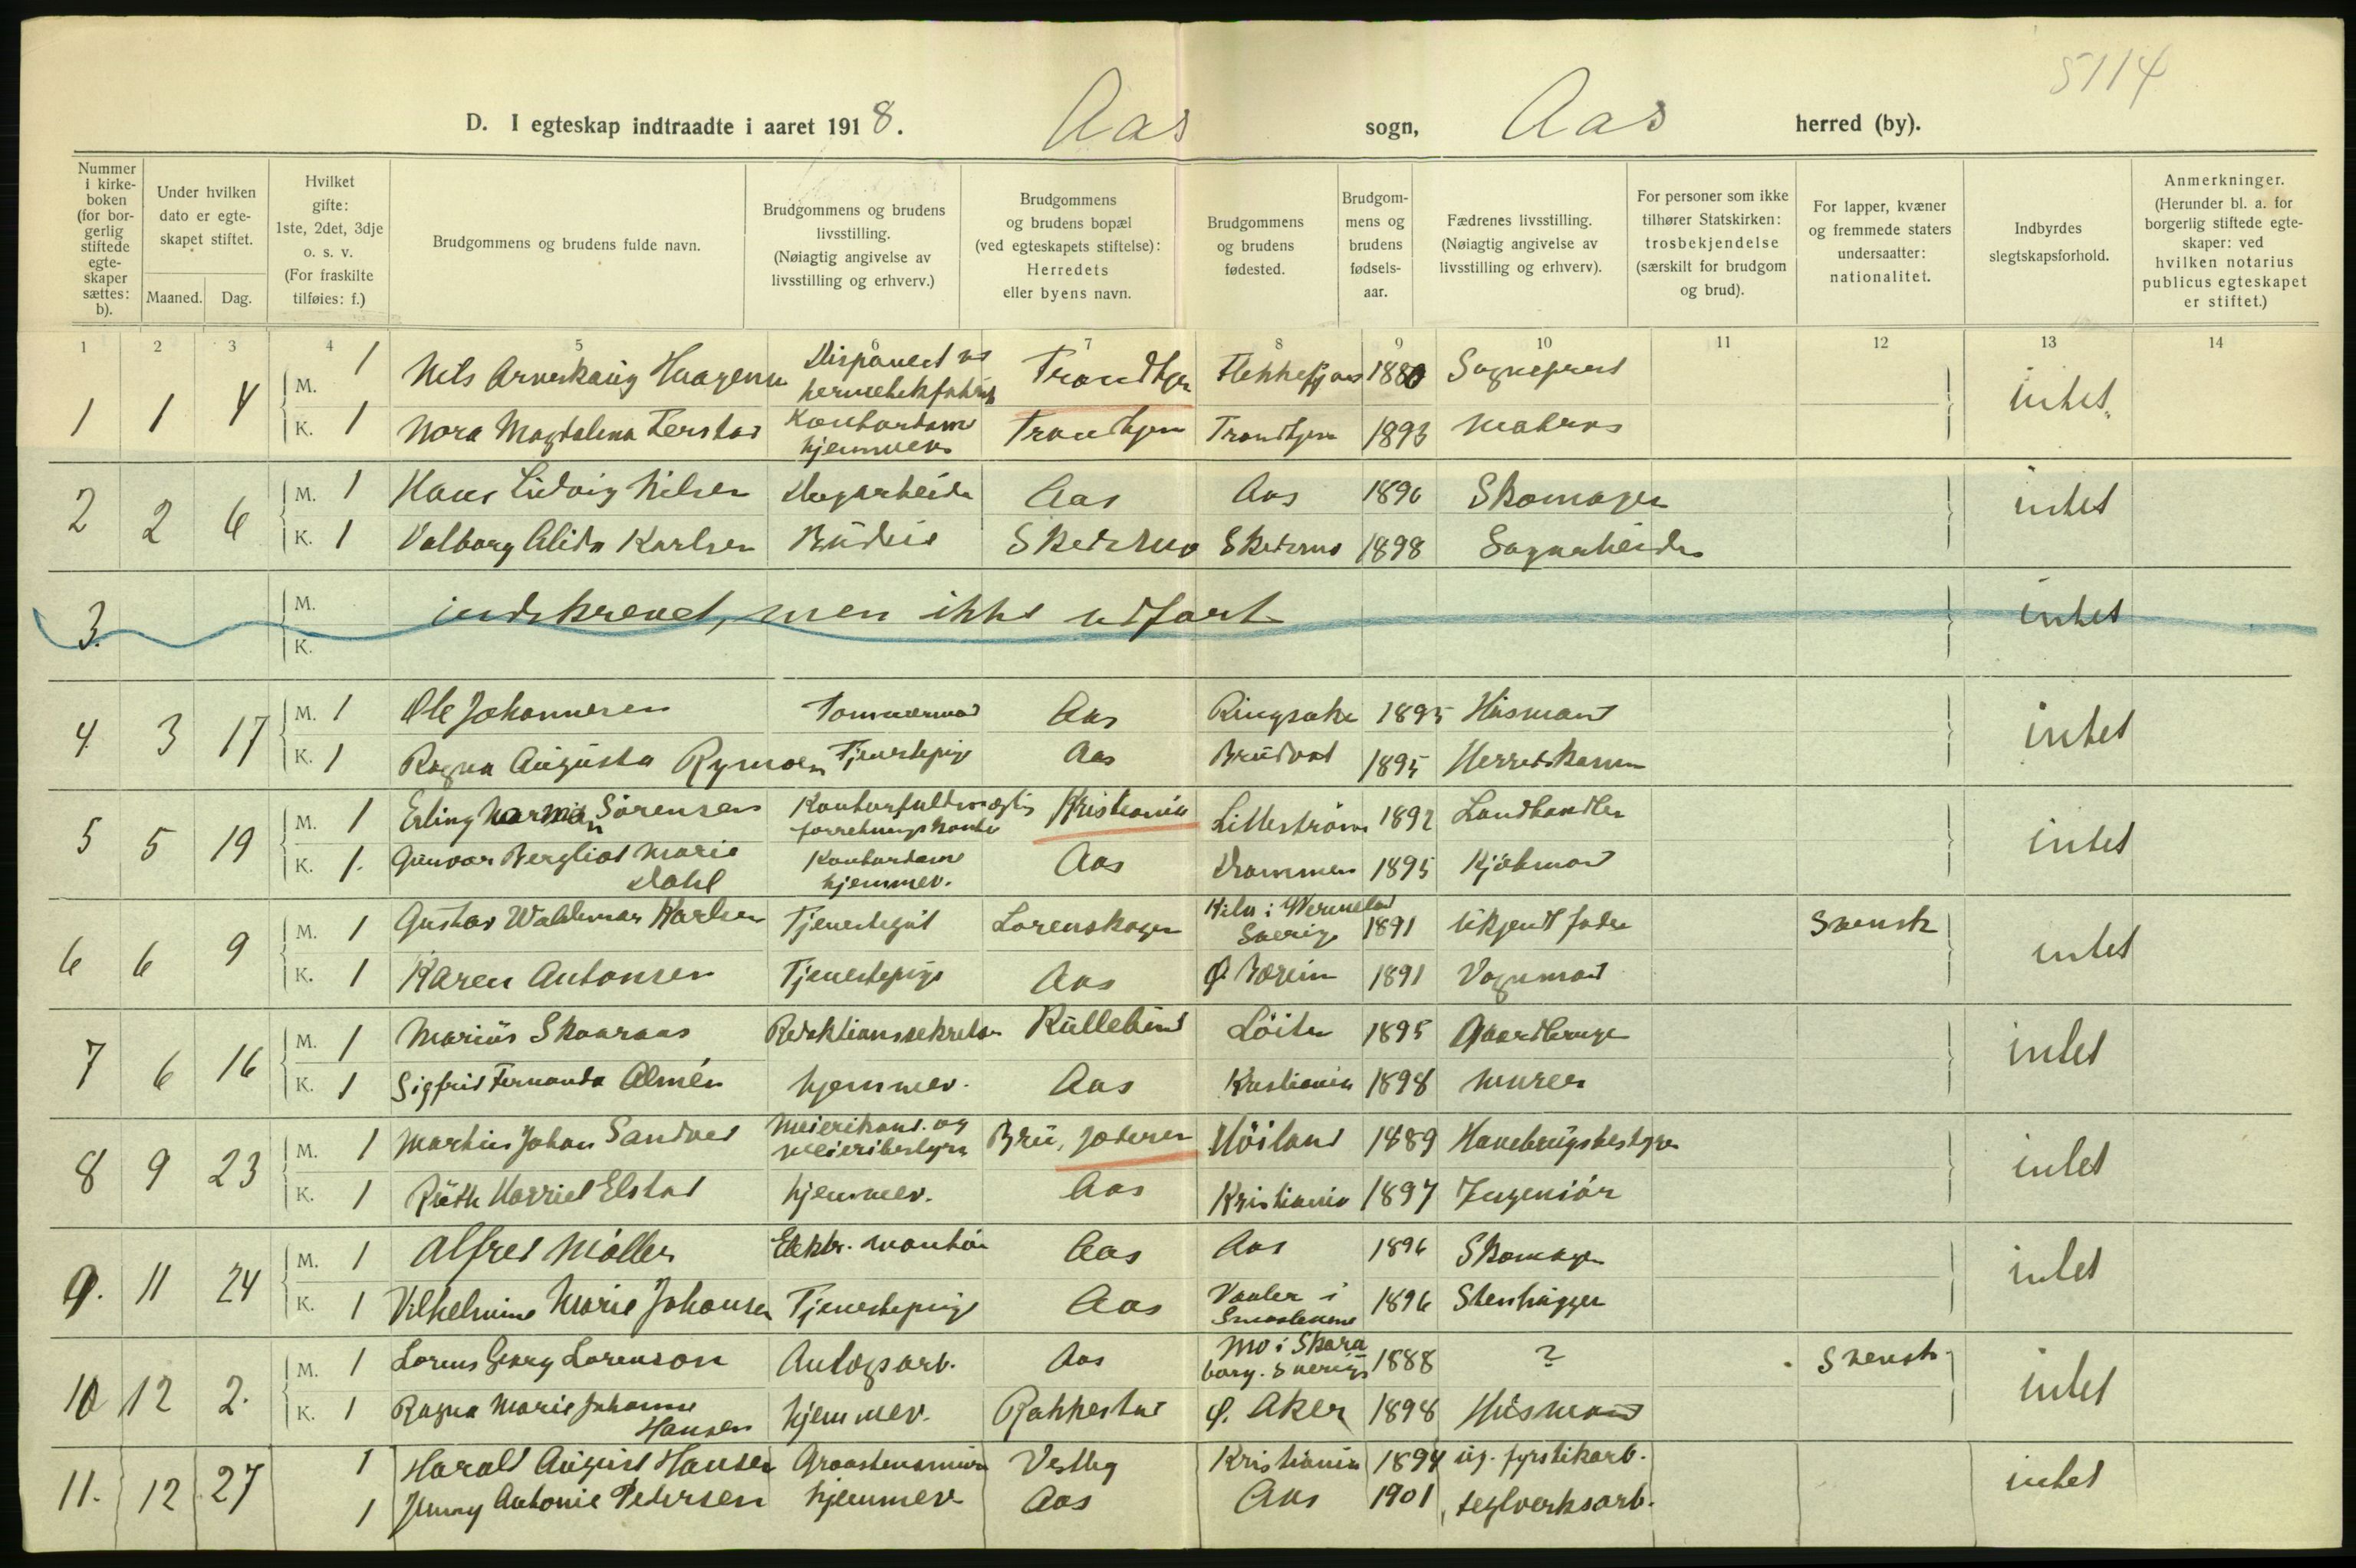 5114
D. I egteskap indtraadte i aaret 1918. Aas sogn, Aas herred (by).
Nummer i kirke- boken (for bor- gerlig stiftede egte- skaper sættes: b).
Under hvilken dato er egte- skapet stiftet.
Maaned. Dag.
Hvilket gifte: 1ste, 2det, 3dje o. s. v. (For fraskilte tilføies: f.)
Brudgommens og brudens fulde navn.
Brudgommens og brudens livsstilling. (Nøiagtig angivelse av livsstilling og erhverv.)
Brudgommens og brudens bopæl (ved egteskapets stiftelse): Herredets eller byens navn.
Brudgommens og brudens fødested.
Brudgom- mens og brudens fødsels- aar.
Fædrenes livsstilling. (Nøiagtig angivelse av livsstilling og erhverv).
For personer som ikke tilhører Statskirken: trosbekjendelse (særskilt for brudgom og brud).
For lapper, kvæner og fremmede staters undersaatter: nationalitet.
Indbyrdes slegtskapsforhold.
Anmerkninger. (Herunder bl. a. for borgerlig stiftede egte- skaper: ved hvilken notarius publicus egteskapet er stiftet.)
1 2 3 4 5 7 8 9 10 11 12 13 14
1 1 4 M. 1 Nils Haagensen Trondhjem 1880 Sogneprest intet
K. 1 Nora Magdalena Kontordame hjemmev. Trondhjem Trondhjem 1893 matros
2 2 6 M. 1 Hans Ludvig Nilsen Aas Aas 1890 Skomager intet
K. 1 Valborg Alida Karlsen Budeie Skedsmo Skedsmo 1898 Sagarbeider
3. M. indskrevet, men ikke udført intet
K.
4 3 17 M. 1 Ole Johannesen Tømmermand Aas Ringsaker 1895 Husmand intet
K. 1 Ragna Augusta Rymoen Tjenestepige Aas 1895
5 5 19 M. 1 Erling Norman Sörensen Kontorfuldmægtig Kristiania Lilleström 1892 Landhandler intet
K. 1. Gunvor Bergliot Marie Dahl Kontordame hjemmev. Aas Drammen 1895 Kjöbmand
6 6 9 M. 1 Gustav Waldemar Karlsen Tjenestegut Lorenskogen i Wermeland Sverige 1891 Ukjendt fader Svensk intet
K. 1 Karen Antonsen Tjenestepige Aas Ø. 1891 Vognmand
7 6 16 M. 1 Marius Skaaraas Redaktionssekretær Löiten 1895 Gaardbruger intet
K. 1 Sigfrid Fernanda Almén hjemmev. Aas Kristiania 1898 murer
8 9 23 M. 1 Martin Johan Sandved Meierikand. og meieribestyrer Bru, Jæderen Höiland 1889 Havebrugsbestyrer intet
K. 1 Ruth Harriet Elstad hjemmev. Aas Kristiania 1897 Ingeniör
9. 11 24 M. 1 Alfred Möller Elektr. montör Aas Aas 1896 Skomager intet
K. 1 Vilhelmine Marie Johansen Tjenestepige Aas Vaaler i Smaalenene 1896 Stenhugger
10 12 2. M. 1 Lorens Georg Lorenson Anlægsarb. Aas Mo i Skara borg. Sverige 1888 ? Svensk intet
K. 1 Ragna Marie Johanne Hansen hjemmev. Rakkestad Ø. Aker 1898 Husmand
11. 12 27 1 Harald August Hansen Vestby Kristiania 1894 ug. fyrstikarb. intet
1 Jenny Antonie Pedersen hjemmev. Aas Aas 1901 teglverksarb.